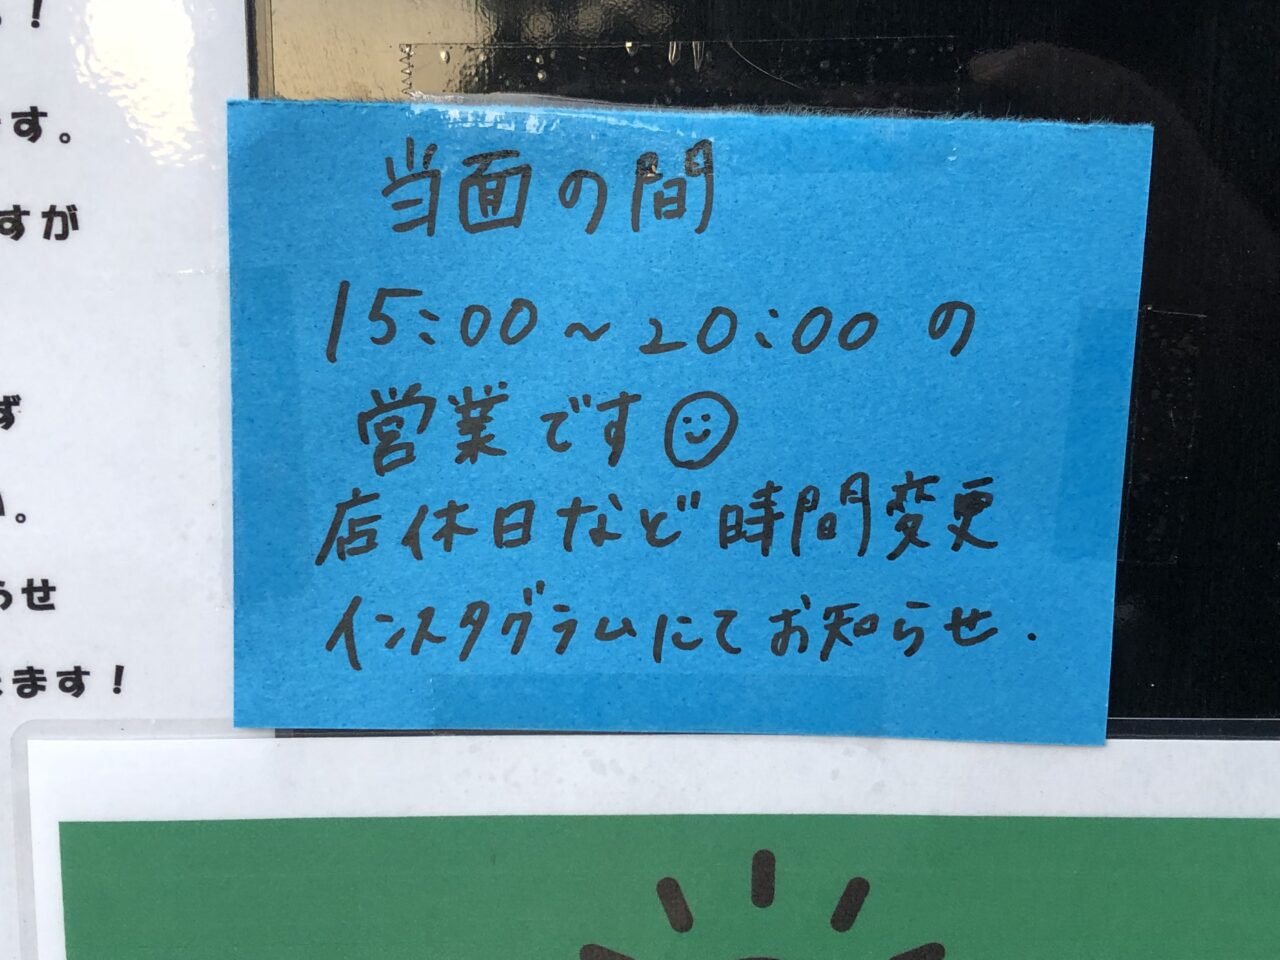 ！
す。
すが
ず
。
らせ
ます！
当面の間
15:00～20:00の
営業です
店休日など時間変更
インスタグラムにてお知らせ.